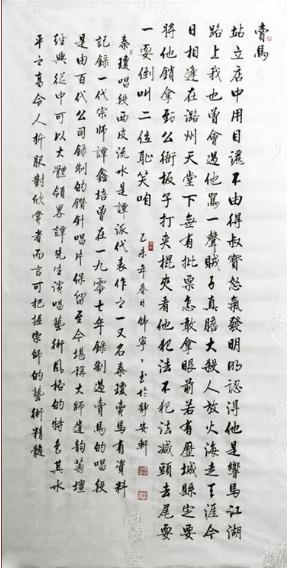 賣馬
站立店中用目瞟不由得叔寶怒氣發明明認得他是響馬江湖
路上我也曾會過他罵一聲賊子真膽大殺人放火海走天涯今
日相逢在潞州天堂下無有批票怎敢拿眼前若有歷城縣定要
將他鎖拿到公衙板子打夾棍夾看他犯法不犯法減頭去尾要
一耍倒叫二位恥笑咱
乙未年春日 佛寧 書於靜安軒
秦瓊唱段西皮流水是譚派代表作之一又名秦瓊賣馬有資料
記錄一代宗師譚鑫培曾在一九零七年錄制過賣馬的唱段
是由百代公司錄制的鑽針唱片保留至今堪稱大師遺韻菊壇
經典從中可以大體領略譚先生演唱藝術風格的特色其水
平之高令人折服對欣賞者而言可把握宗師的藝術精髓